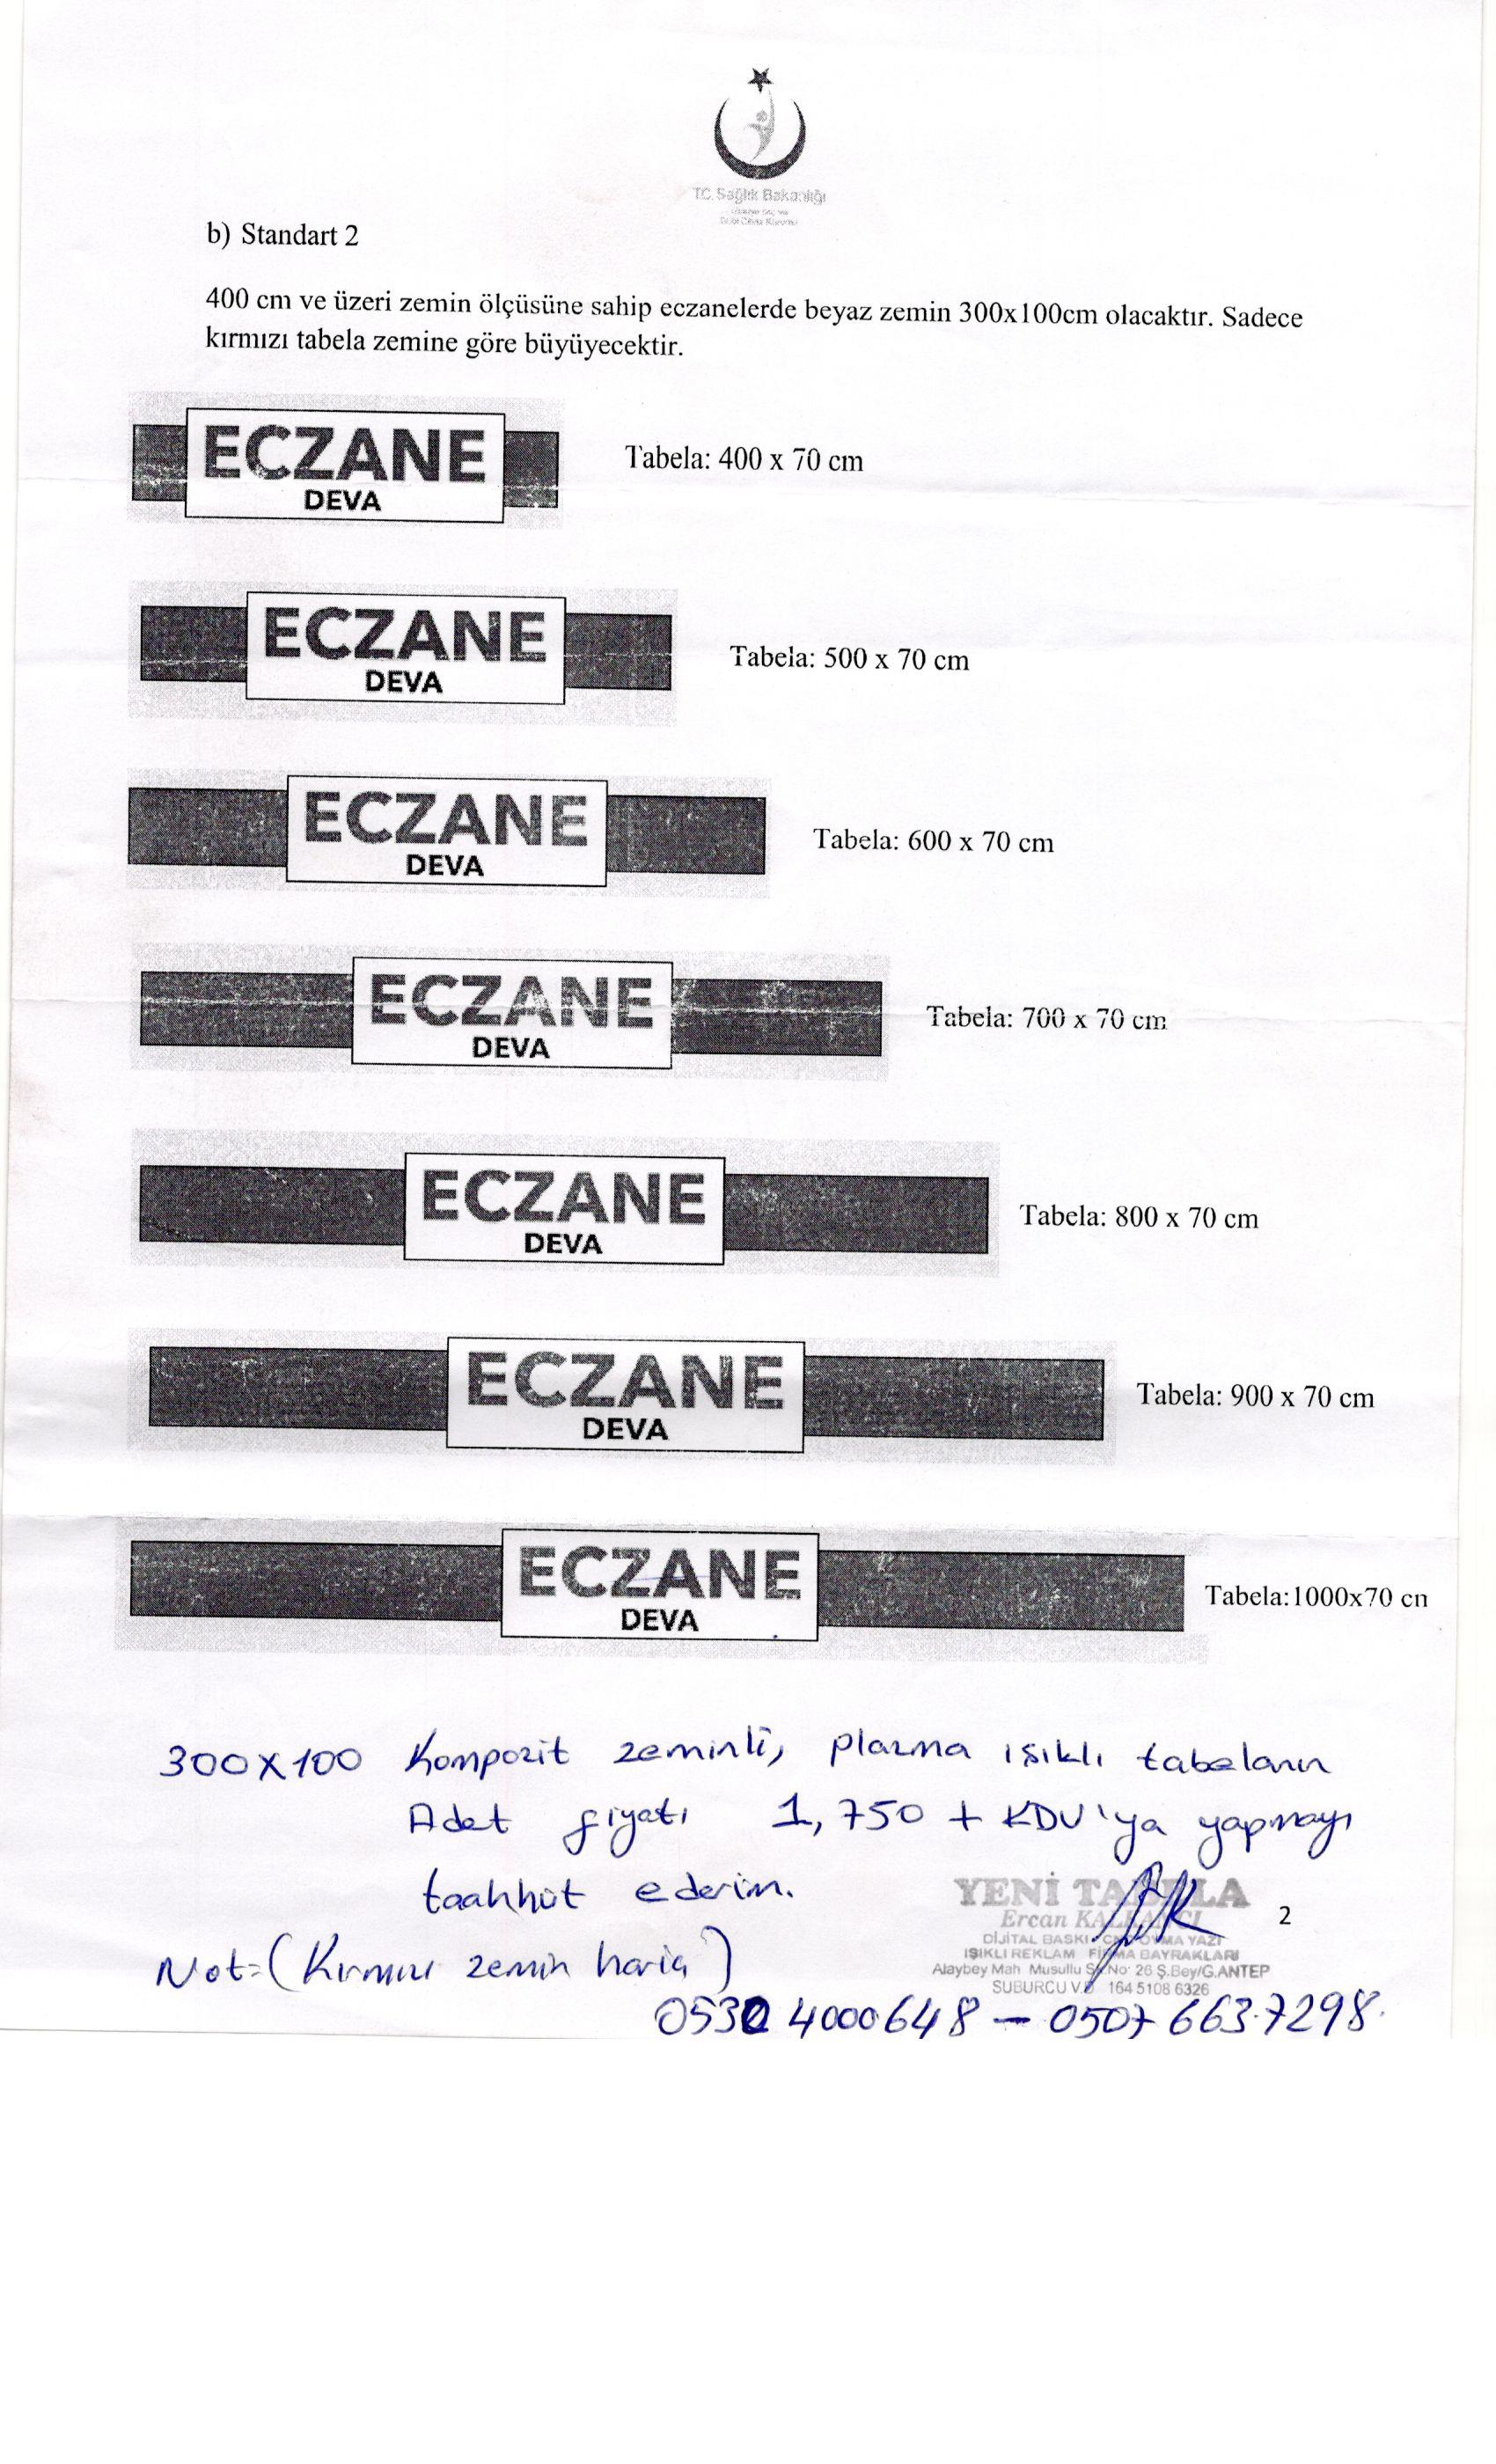 T.C. Sağlık Bakanlığı
b) Standart 2
400 cm ve üzeri zemin ölçüsüne sahip eczanelerde beyaz zemin 300x100cm olacaktır. Sadece
kırmızı tabela zemine göre büyüyecektir.
ECZANE
DEVA
Tabela: 400 x 70 cm
ECZANE
DEVA
Tabela: 500 x 70 cm
ECZANE
DEVA
Tabela: 600 x 70 cm
ECZANE
DEVA
Tabela: 700 x 70 cm
ECZANE
DEVA
Tabela: 800 x 70 cm
ECZANE
DEVA
Tabela: 900 x 70 cm
ECZANE
DEVA
Tabela:1000x70 cn
300X100 Kompozit zeminli, plazma ışıklı tabelanın
Adet fiyatı 1,750 + KDV'ya yapmayı
taahhüt ederim.
YENİ TABELA
Ercan
2
DİJİTAL BASKI OYMA YAZI
IŞIKLI REKLAM FİRMA BAYRAKLARI
Not=(Kırmızı zemin hariç)
Alaybey Mah Musullu Sk.No: 26 Ş.Bey/G.ANTEP
SUBURCU V.D 164 5108 6326
0532 4000648 - 0507 663 7298